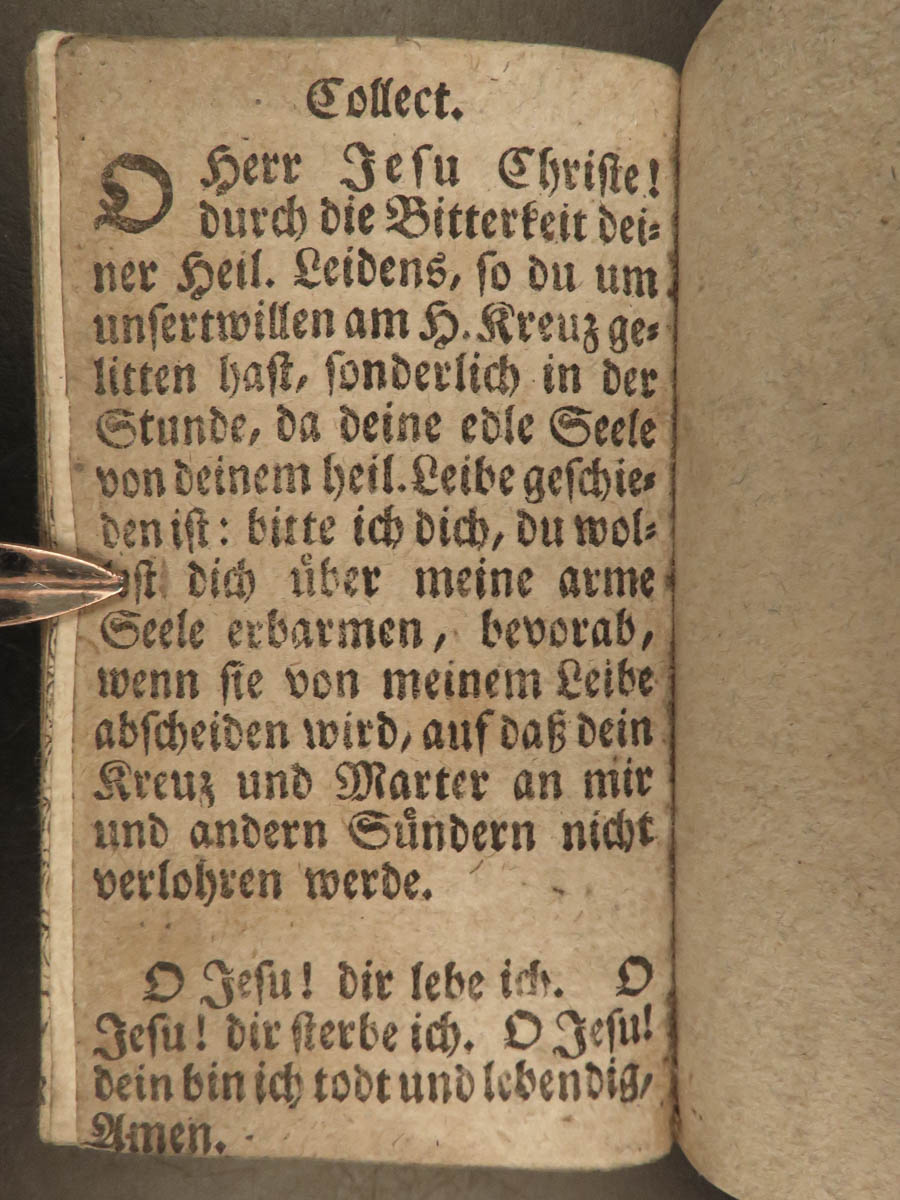 Collect.
O Herr Jesu Christe!
durch die Bitterkeit dei-
ner Heil. Leidens, so du um
unsertwillen am H. Kreuz ge-
litten hast, sonderlich in der
Stunde, da deine edle Seele
von deinem heil. Leibe geschie-
den ist: bitte ich dich, du wol-
lest dich über meine arme
Seele erbarmen, bevorab,
wenn sie von meinem Leibe
abscheiden wird, auf daß dein
Kreuz und Marter an mir
und andern Sündern nicht
verlohren werde.
O Jesu! dir lebe ich. O
Jesu! dir sterbe ich. O Jesu!
dein bin ich todt und lebendig,
Amen.